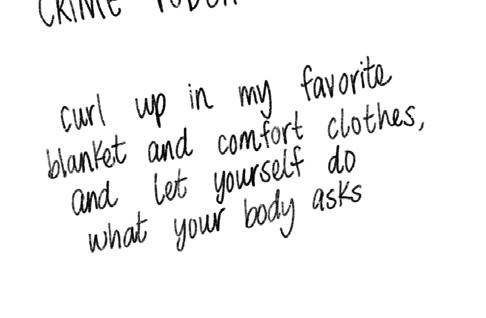 CRIME
curl up in my favorite
blanket and comfort clothes,
and let yourself do
what your body asks